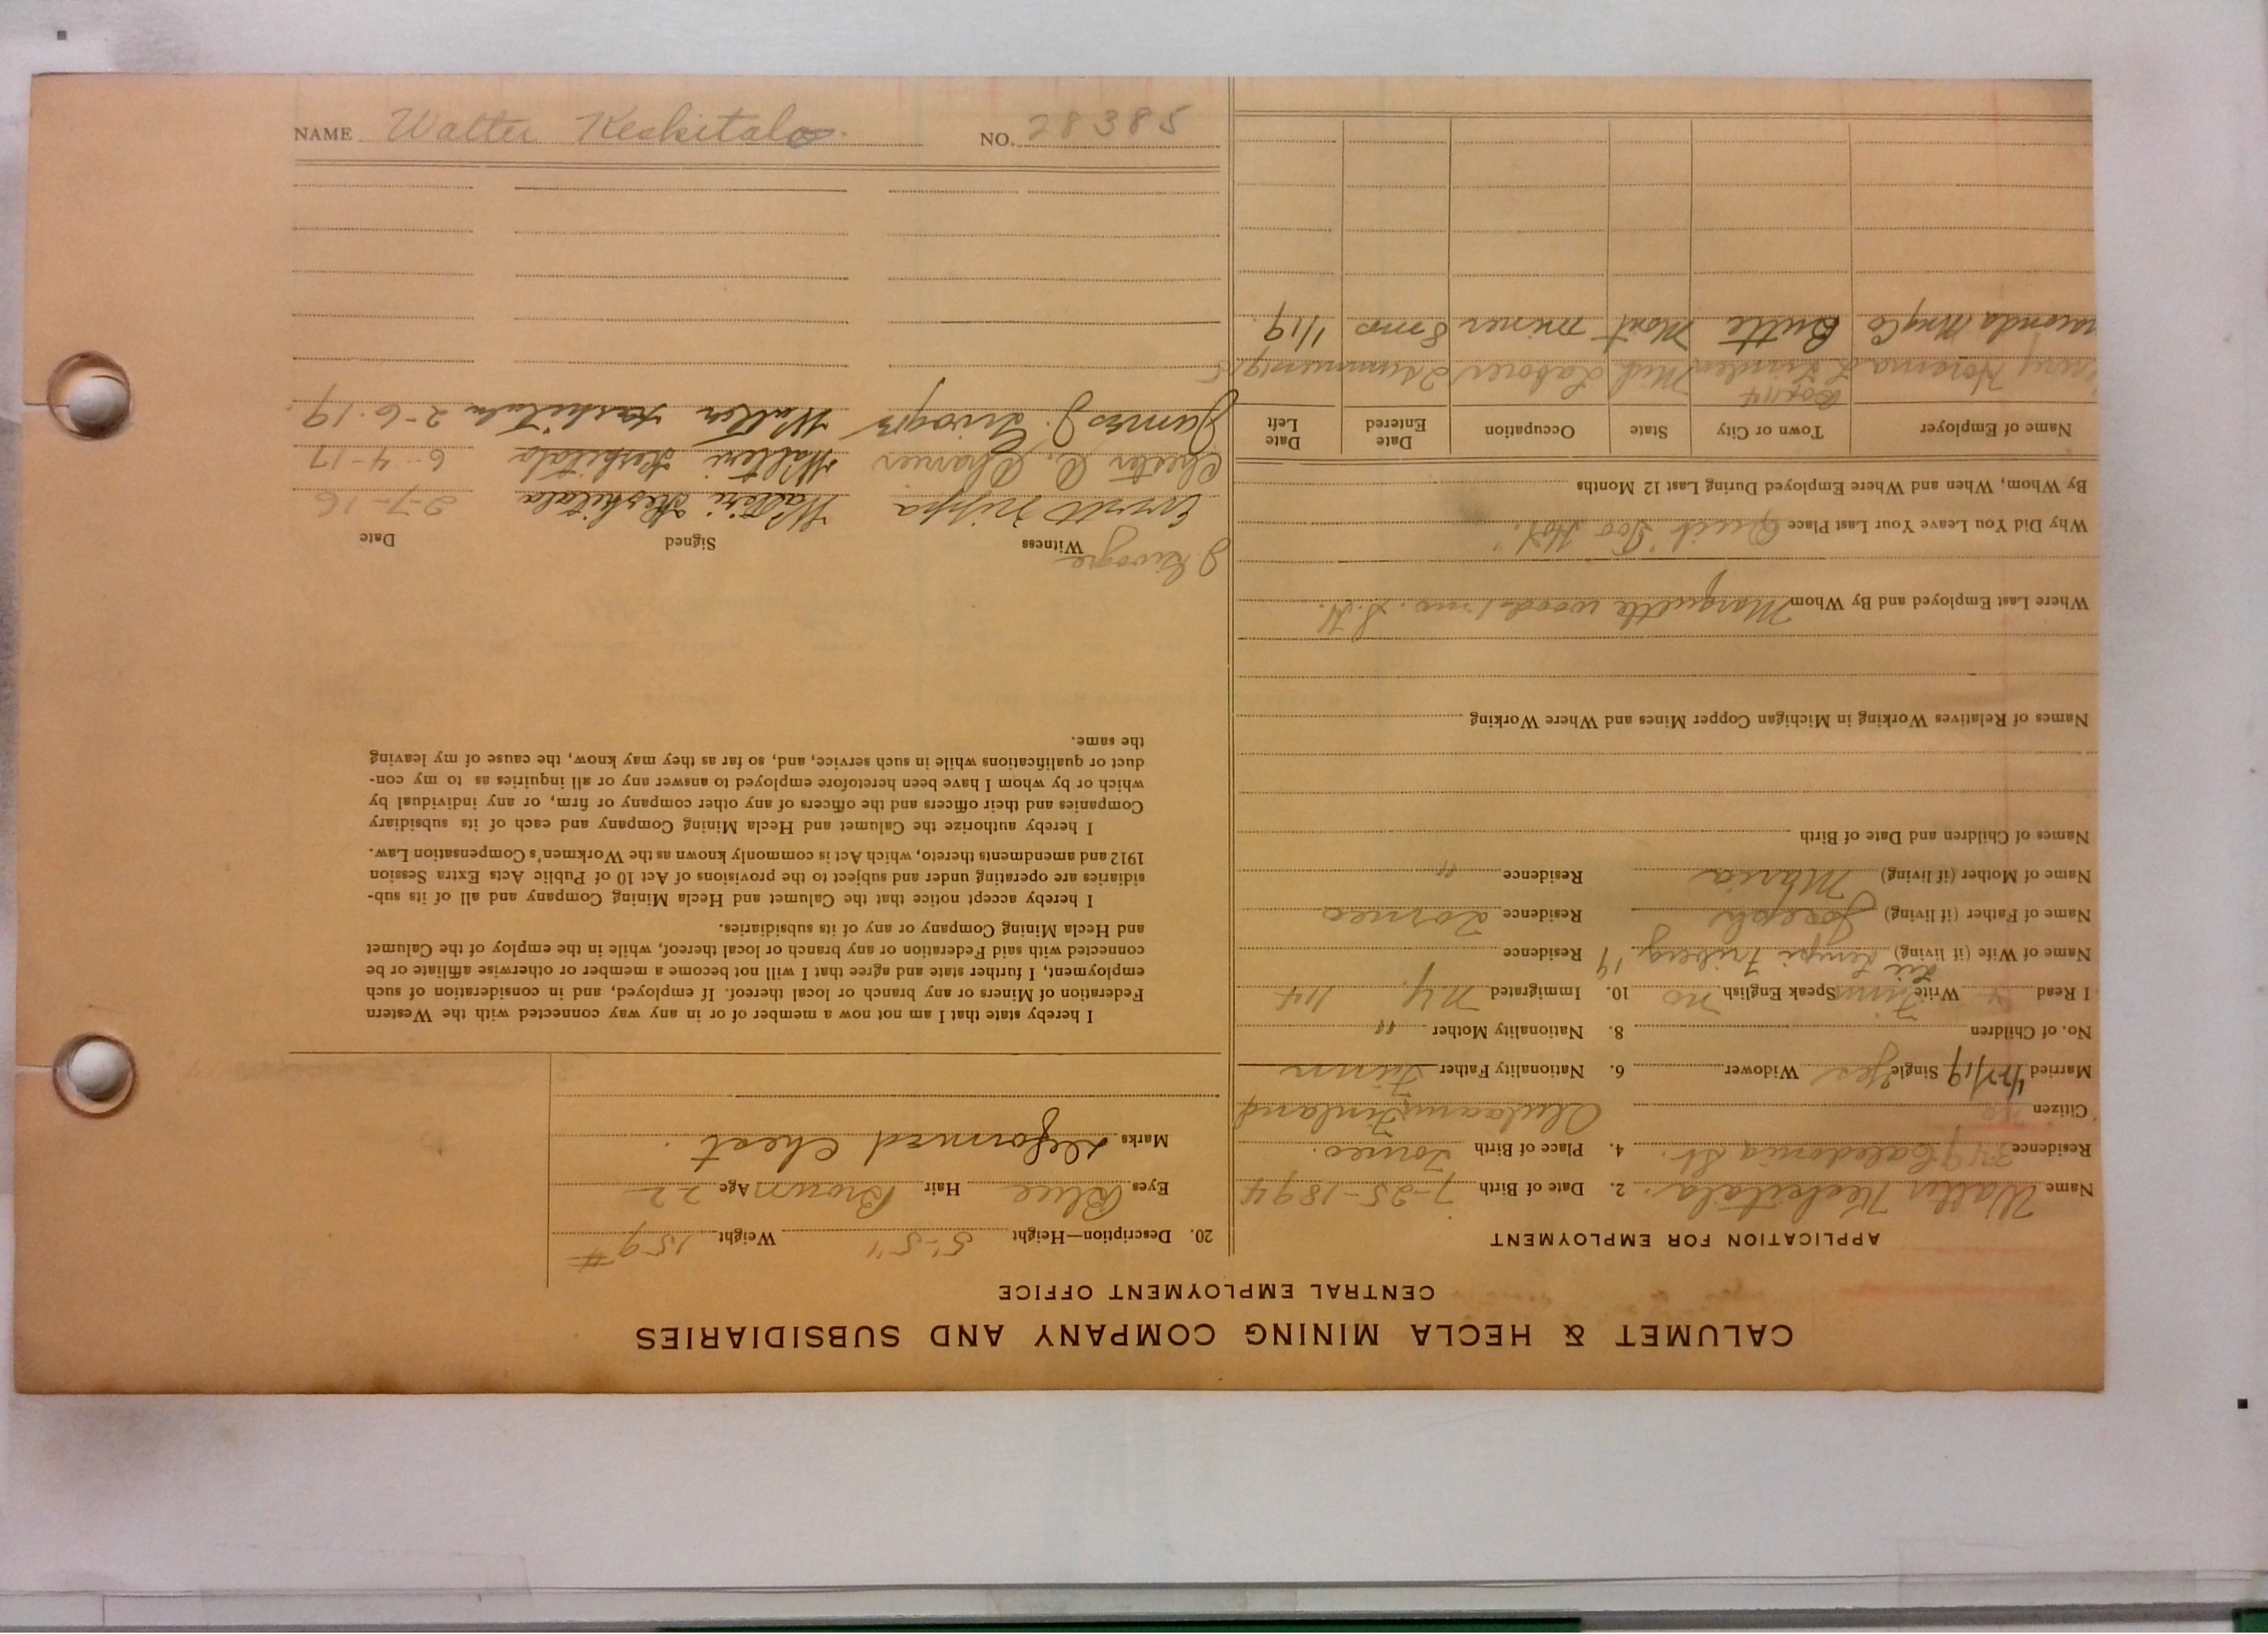 CALUMET & HECLA MINING COMPANY AND SUBSIDIARIES
CENTRAL EMPLOYMENT OFFICE
APPLICATION FOR EMPLOYMENT
Name Walter Keskitalo. 2. Date of Birth 7-25-1894
Residence 3419 Caledonia St. 4. Place of Birth Torneo.
Citizen no Finland
Married 4/27/19 Single Yes Widower 6. Nationality Father Finn
No. of Children 8. Nationality Mother "
I Read Write Finn Speak English no 10. Immigrated N.Y. 1/14
Name of Wife (if living) Lempi Friberg 19 Residence
Name of Father (if living) Joseph Residence Torneo
Name of Mother (if living) Maria Residence "
Names of Children and Date of Birth
Names of Relatives Working in Michigan Copper Mines and Where Working
Where Last Employed and By Whom Marquette woods 1 mo. S.H.
Why Did You Leave Your Last Place Quit "Too Hot."
By Whom, When and Where Employed During Last 12 Months
Name of Employer Town or City State Occupation Date Entered Date Left
Box 114
L Linden Mich Laborer 2 summer 1915
Mng Co Butte Mont miner 8 mo 1/19
20. Description—Height 5'-5" Weight 159 #
Eyes Blue Hair Brown Age 22
Marks Deformed Chest.
I hereby state that I am not now a member of or in any way connected with the Western
Federation of Miners or any branch or local thereof. If employed, and in consideration of such
employment, I further state and agree that I will not become a member or otherwise affiliate or be
connected with said Federation or any branch or local thereof, while in the employ of the Calumet
and Hecla Mining Company or any of its subsidiaries.
I hereby accept notice that the Calumet and Hecla Mining Company and all of its sub-
sidiaries are operating under and subject to the provisions of Act 10 of Public Acts Extra Session
1912 and amendments thereto, which Act is commonly known as the Workmen's Compensation Law.
I hereby authorize the Calumet and Hecla Mining Company and each of its subsidiary
Companies and their officers and the officers of any other company or firm, or any individual by
which or by whom I have been heretofore employed to answer any or all inquiries as to my con-
duct or qualifications while in such service, and, so far as they may know, the cause of my leaving
the same.
Witness Signed Date
Waltter Keskitalo 2-7-16
Chester A. Waltteri Keskitalo 6-4-17
James J. Walter Keskitalo 2-6-19.
NAME Walter Keskitalo. NO. 28385